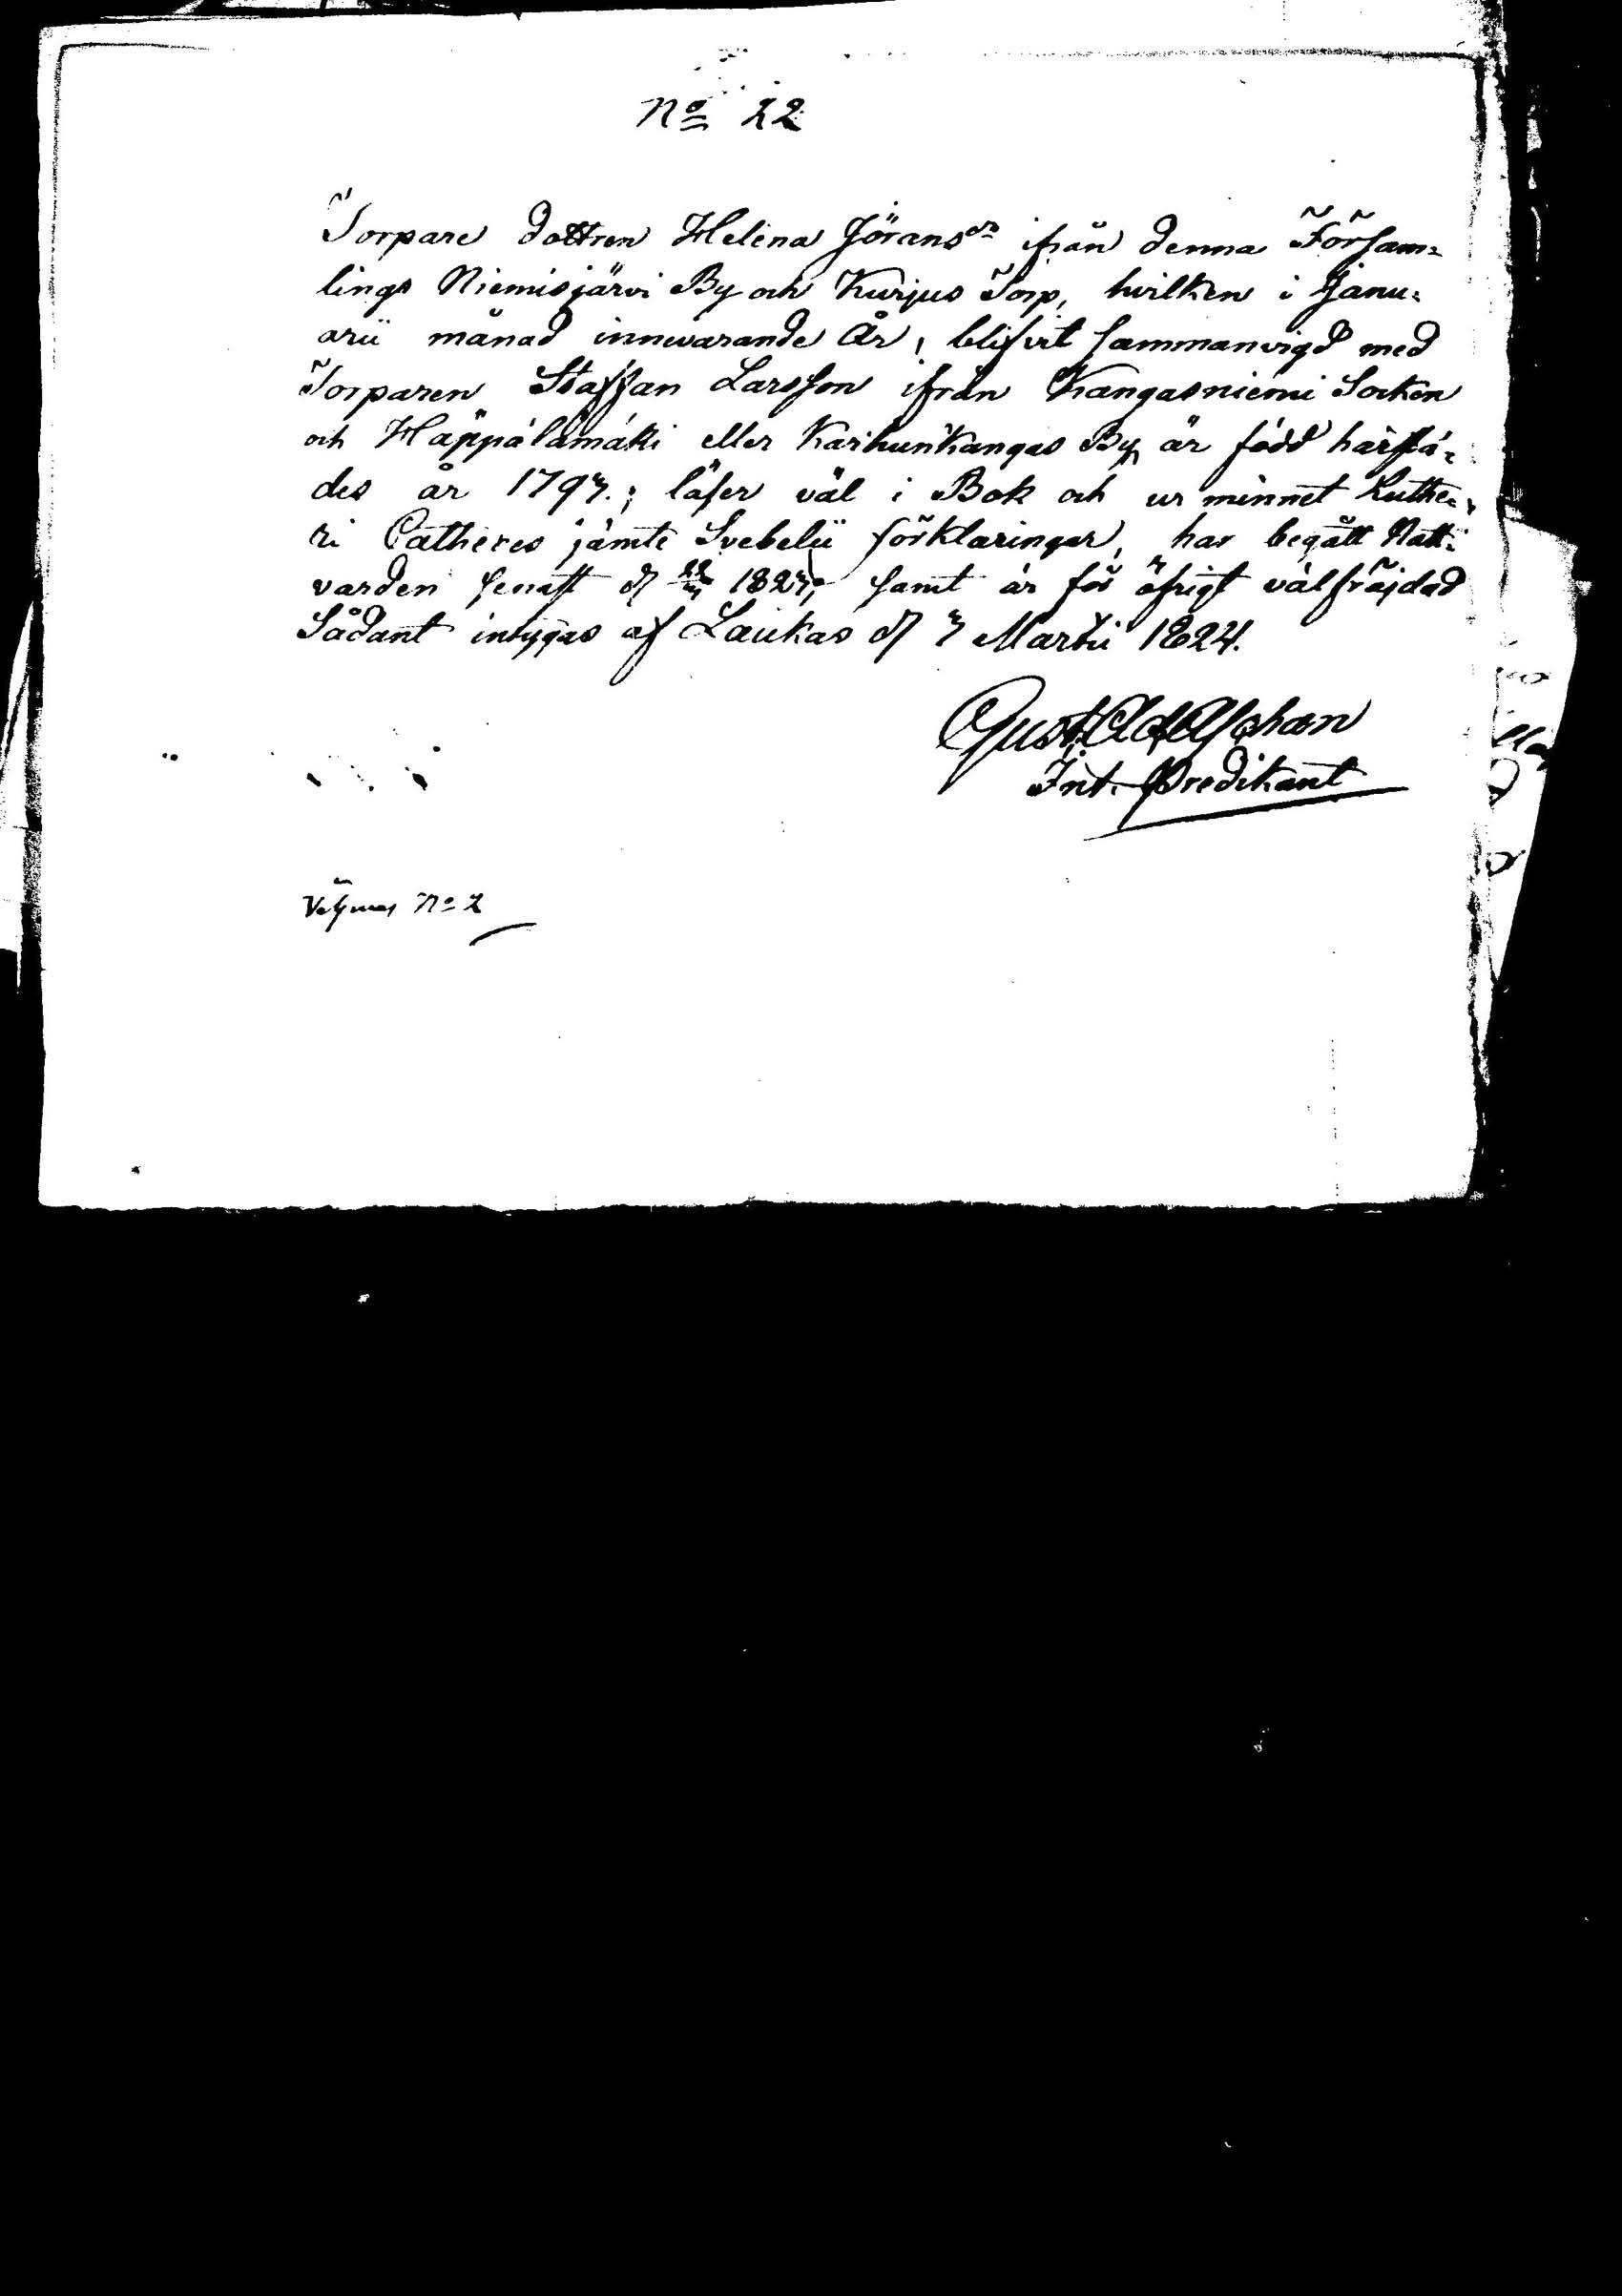 No 22
Torpare dottren Helena Jöransdr ifrån denna Försam=
lings Niemisjärvi By och Kurjus Torp, hvilken i Janu=
arii månad innevarande År, blifvit sammanvigd med
Torparen Staffan Larsson ifrån Kangasniemi Socken
och Häppälämäki eller Karhunkangas By, är född härstä=
des år 1793.; läser väl i Bok och ur minnet Luthe=
ri Catheces jämte Svebelii förklaringar, har begått Natt=
varden senast d 1823, samt är för öfrigt välfräjdad
Sådant intygas af Laukas d 3 Martii 1824.
Gust. Ad.
Int. Predikant
No 2